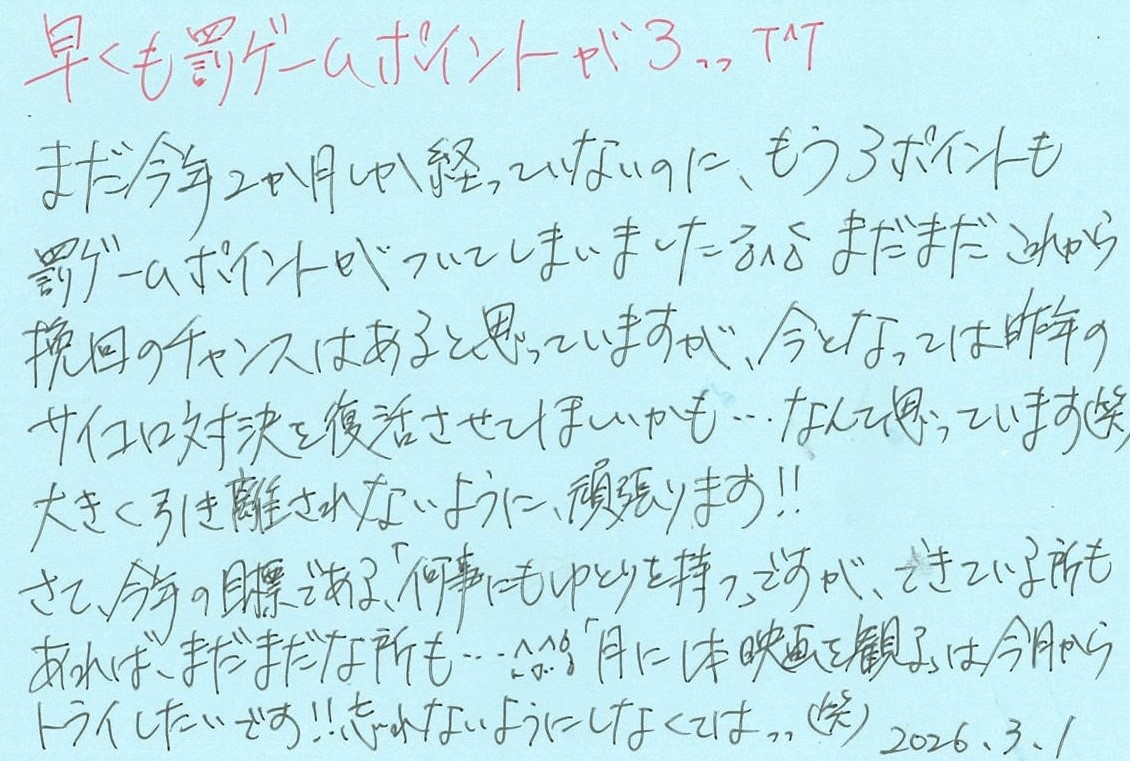 早くも罰ゲームポイントが3,, T^T
まだ今年2か月しか経っていないのに、もう3ポイントも
罰ゲームポイントがついてしまいました まだまだこれから
挽回のチャンスはあると思っていますが、今となっては昨年の
サイコロ対決を復活させてほしいかも…なんて思っています(笑)
大きく引き離されないように、頑張ります!!
さて、今年の目標である、「何事にもゆとりを持つ」ですが、できている所も
あれば、まだまだな所も… 「月に1本映画を観る」は今月から
トライしたいです!!忘れないようにしなくては,,(笑) 2026.3.1